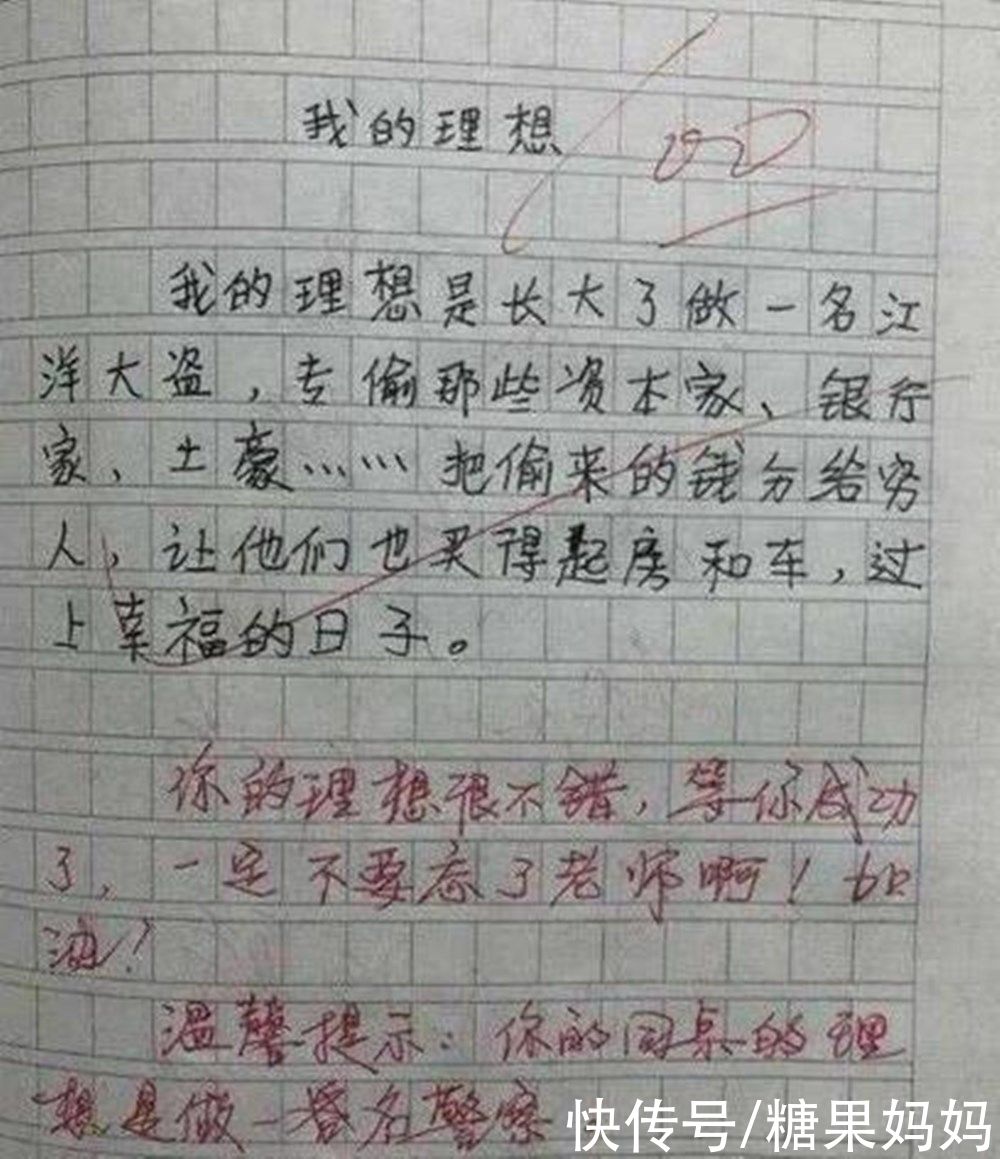 我的理想
我的理想是长大了做一名江
洋大盗，专偷那些资本家、银行
家、土豪……把偷来的钱分给穷
人，让他们也买得起房和车，过
上幸福的日子。
你的理想很不错，等你成功
了，一定不要忘了老师啊！加
油！
温馨提示：你的同桌的理
想是做一名警察
快传号/糖果妈妈